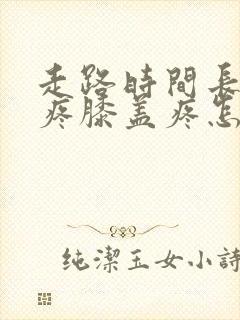 走路時間長
疼膝盖疼怎
純潔玉女小詩